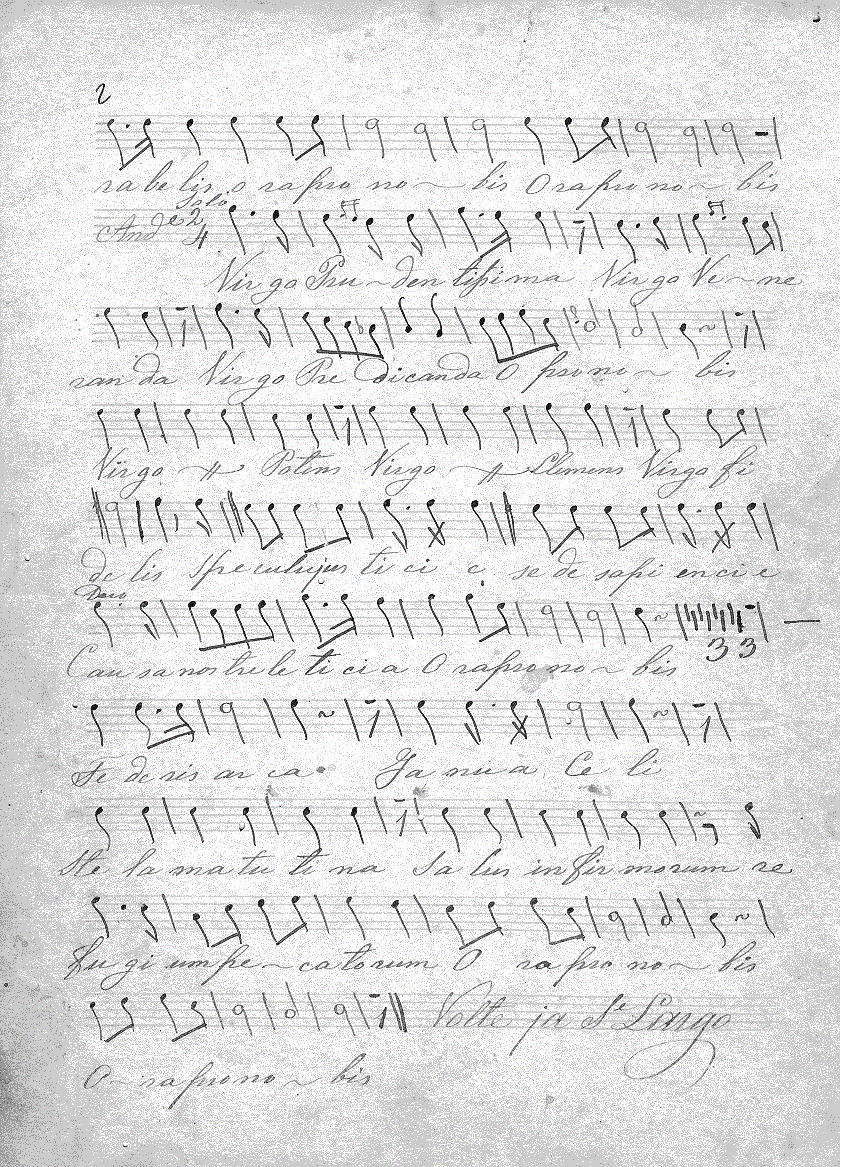 2
ra be lis o ra pro no ~ bis O ra pro no ~ bis
Solo
And.e 2/4
Virgo Pru ~ den tissi ma Virgo Ve ~ ne
ran da Virgo Pre dicanda O pro no ~ bis
Virgo Potens Virgo Clemens Virgo fi
de lis Speculu jus ti ci e se de sapi enci e
Duo
Cau sa nostre le ti ci a O ra pro no ~ bis
33
Fe de ris ar ca Ja nu a Ce li
Ste la ma tu ti na Sa lus in fir morum re
fu gi um pe ~ ca torum O ra pro no ~ bis
Volte ja Sr. Largo
O ~ ra pro no ~ bis